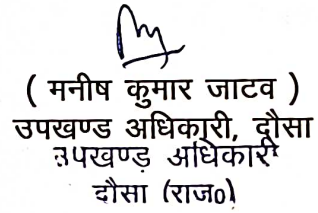 ( मनीष कुमार जाटव )
उपखण्ड अधिकारी, दौसा
उपखण्ड़ अधिकारी
दौसा (राज0)